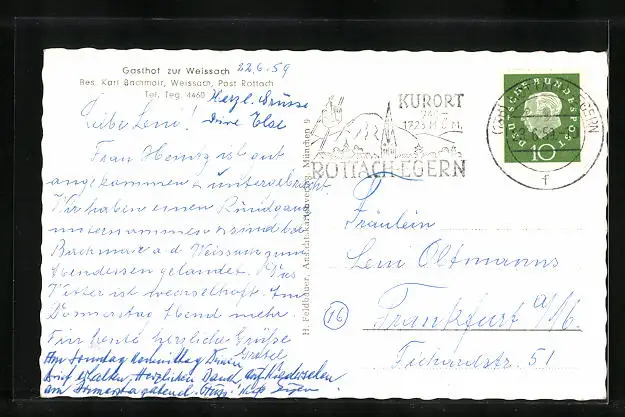 Gasthof zur Weissach
22.6.59
Bes. Karl Bachmair, Weissach, Post Rottach
Tel. Teg. 4460
Herzl. Grüsse
Deine Else
Liebe Leni!
Frau Hentz ist gut
angekommen & untergebracht.
Wir haben einen Rundgang
unternommen & sind bei
Bachmair a.d. Weissach zum
Abendessen gelandet. Das
Wetter ist wechselhaft. Am
Donnerstag Abend mehr.
Für heute herzliche Grüße
Gretel
Am Sonntag Vormittag Deinen
Brief erhalten, Herzlichen Dank, auf Wiedersehen
am Donnerstag abend. Gruss!
H. Feldhäuer, Ansichtskartenverlag, München 9
KURORT
740-
1725 M Ü.M.
ROTTACH-EGERN
DEUTSCHE BUNDESPOST
10
f
Fräulein
Leni Oltmanns
16
Frankfurt a/M.
Fichardstr. 51